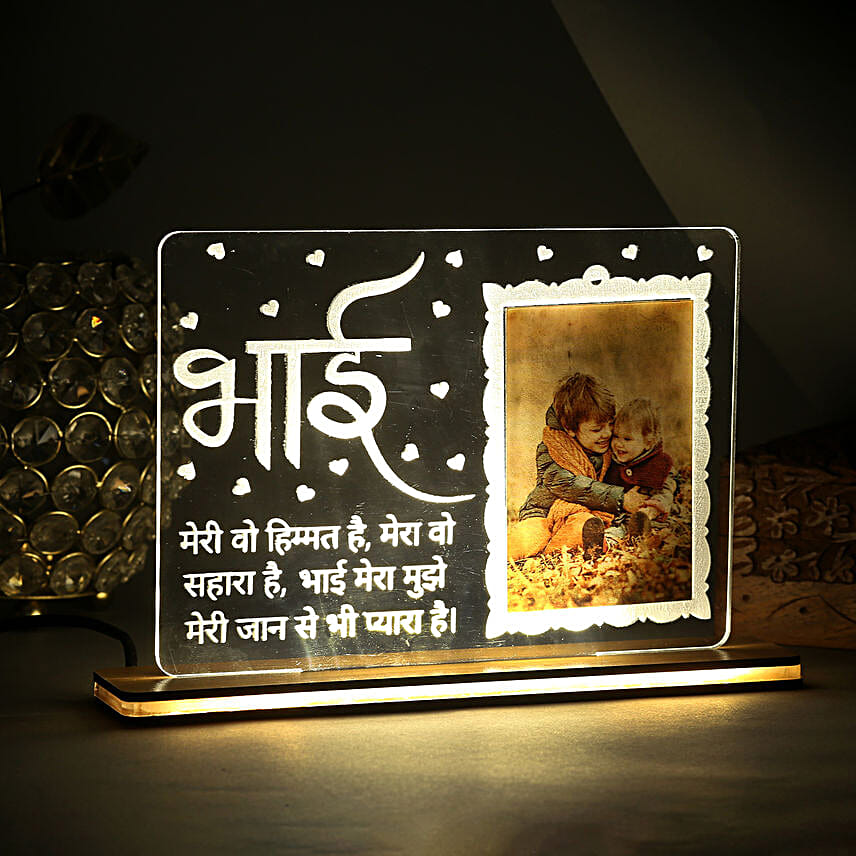 भाई
मेरी वो हिम्मत है, मेरा वो
सहारा है, भाई मेरा मुझे
मेरी जान से भी प्यारा है।